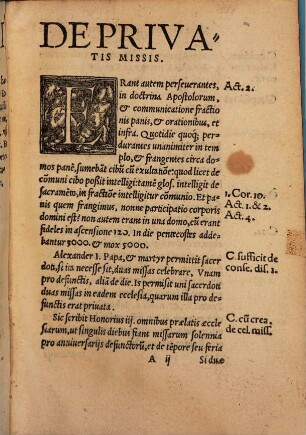 DE PRIVA-
TIS MISSIS.
ERant autem perseuerantes, Act. 2.
in doctrina Apostolorum,
& communicatione fractio
nis panis, & orationibus, et
infra. Quotidie quoq́; per-
durantes unanimiter in tem
plo, & frangentes circa do-
mos panē, sumebāt cibū cū exulatiōe: quod licet de
cōmuni cibo poßit intelligi: tamē glos. intelligit de
sacramēto, in fractiōe intelligitur cōmunio. Et pa- 1. Cor. 10.
nis quem frangimus, nonne participatio corporis Act. 1. & 2.
domini est? non autem erant in una domo, cū erant Act. 4.
fideles in ascensione 120. in die pentecostes adde-
bantur 3000. & mox 5000.
Alexander 1. Papa, & martyr permittit sacer C. sufficit de
doti, si ita necesse sit, duas missas celebrare, Vnam conse. dist. 1.
pro defunctis, aliā de die. Is permisit uni sacerdoti
duas missas in eadem ecclesia, quarum illa pro de-
functis erat priuata.
Sic scribit Honorius iij. omnibus prælatis æccle C. cū crea.
siarum, ut singulis diebus fiant missarum solennia de cel. miss.
pro anniuersarijs defunctorū, et de tēpore seu feria
A ij Si duæ